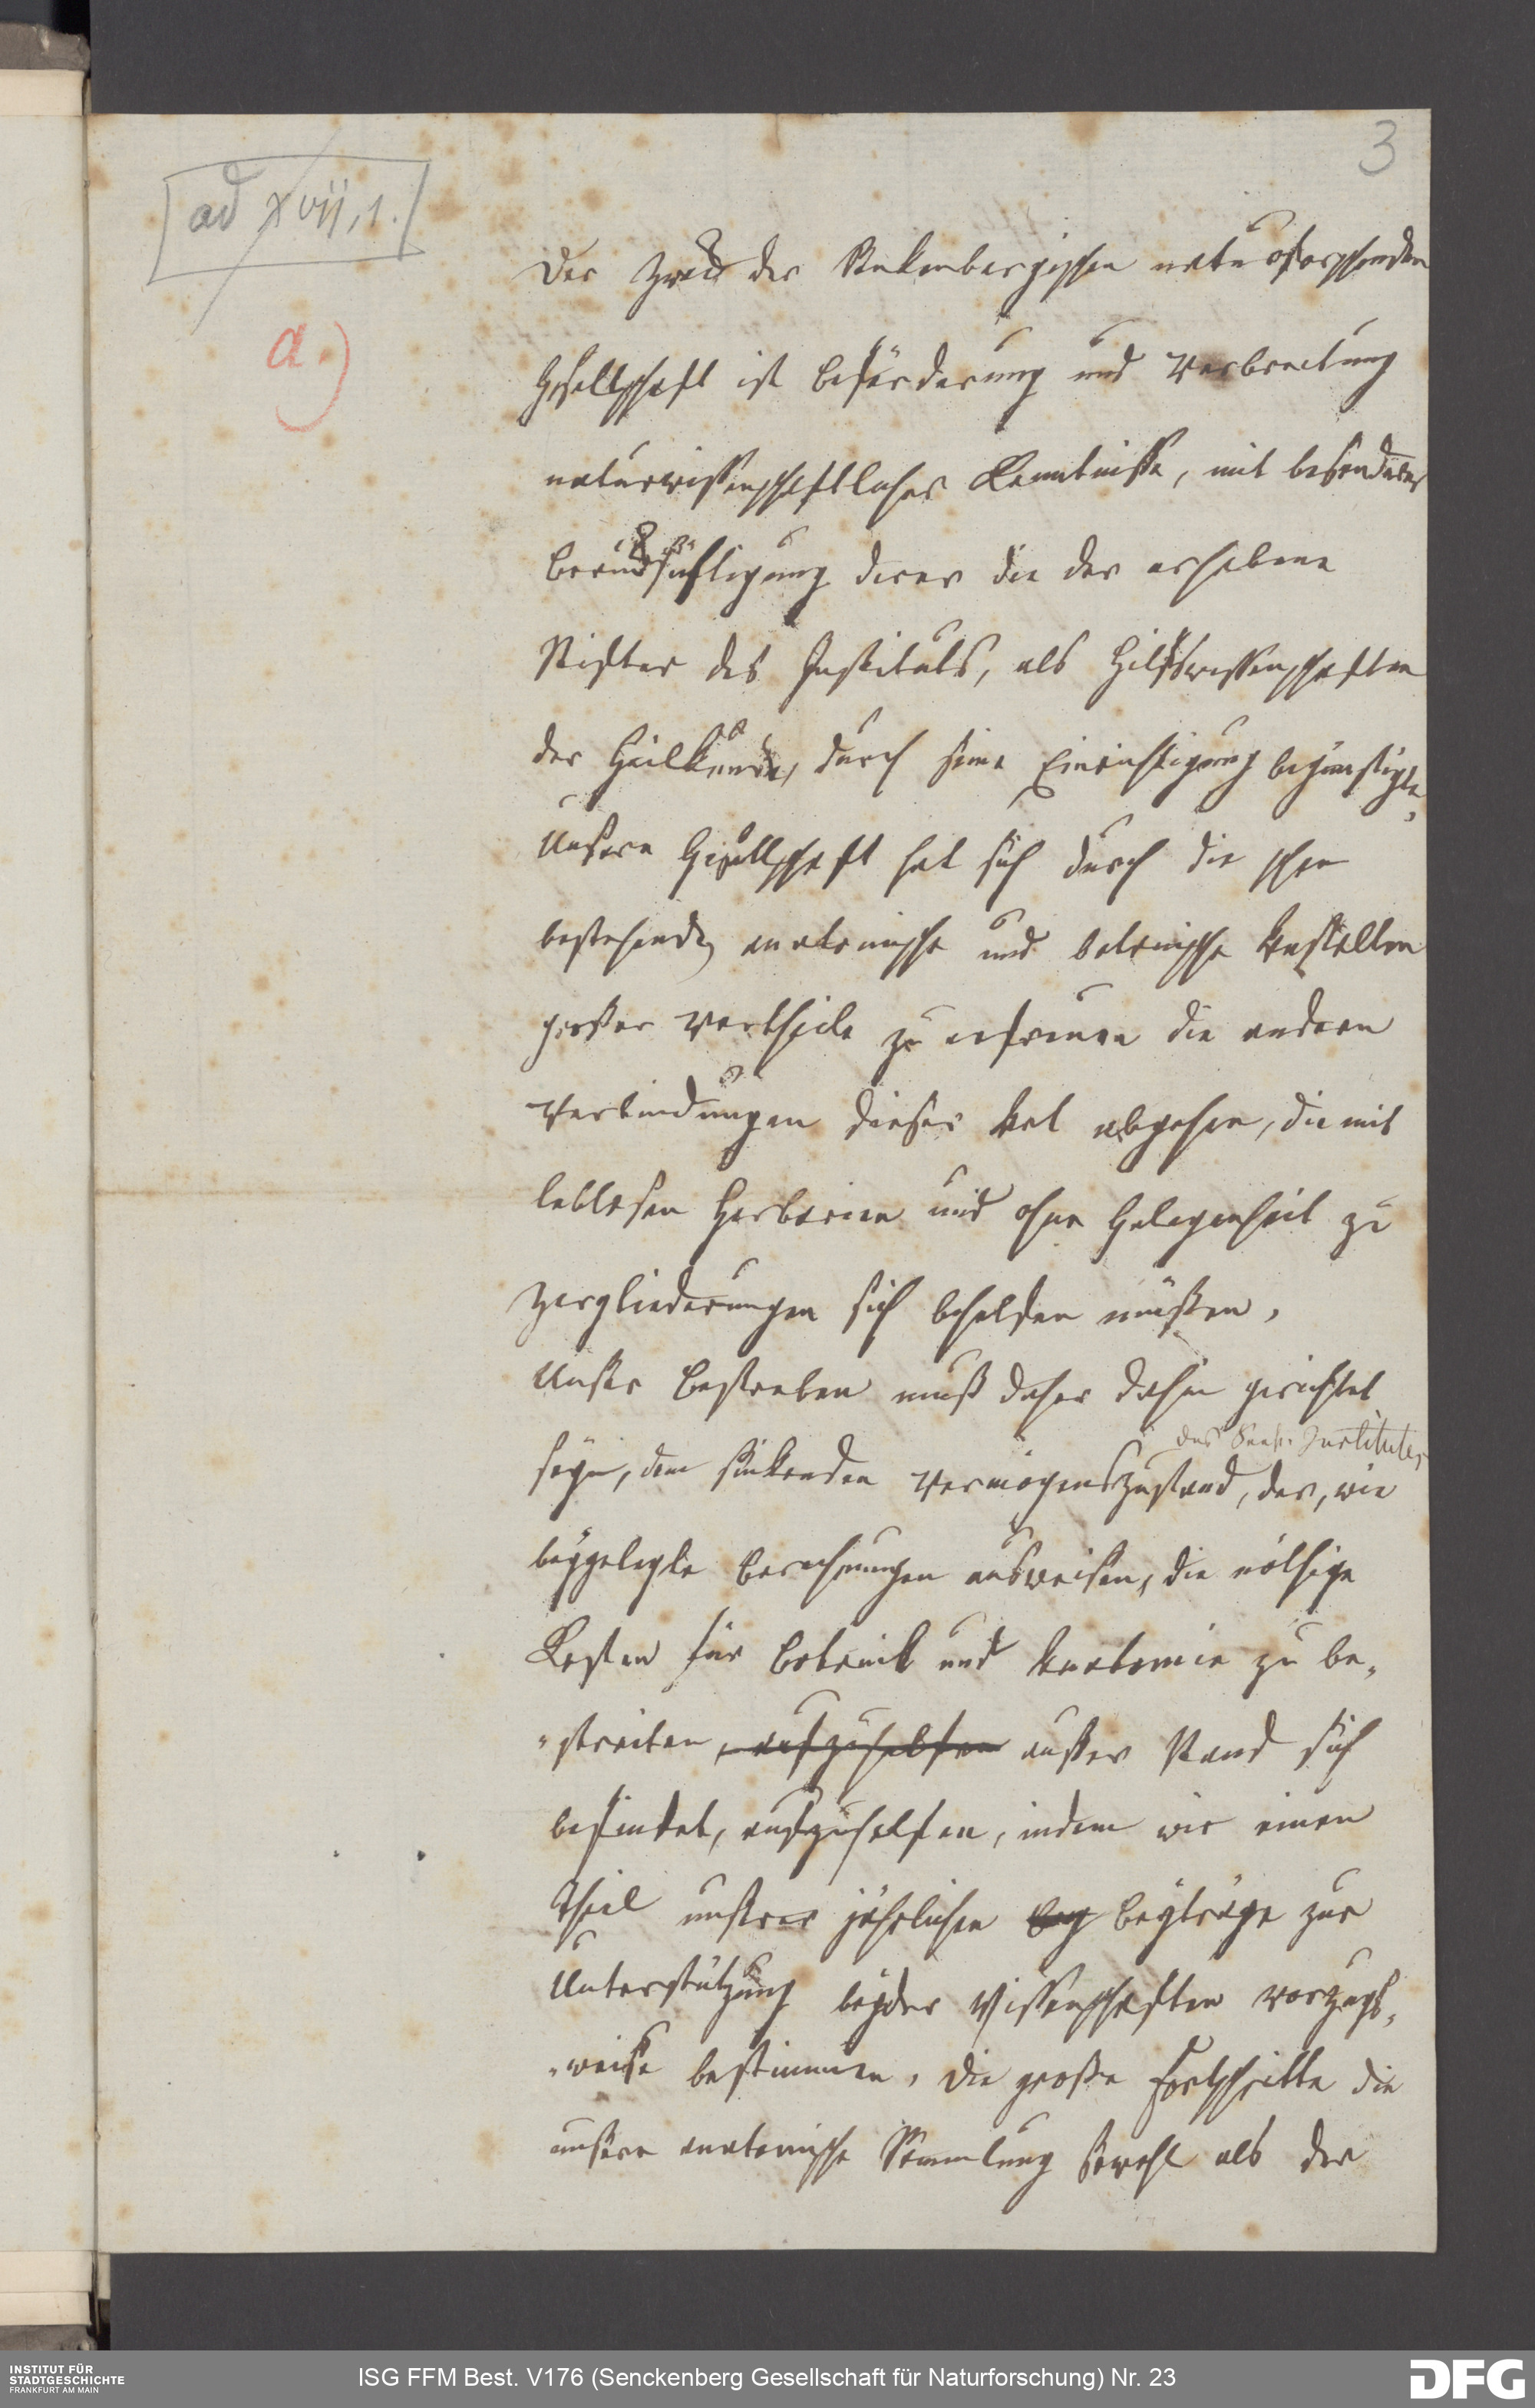 3
ad XVII, 1.
a.)
Der Zweck der Senkenbergischen naturforschenden
Gesellschaft ist Beförderung und Verbreitung
naturwissenschaftlicher Kenntnisse, mit besonderer
Berücksichtigung derer die der erhabene
Stifter des Instituts, als Hilfswissenschaften
der Heilkunde, durch seine Einrichtigung begünstigte,
Unsere Gesellschaft hat sich durch die schon
bestehenden anatomische und botanische Anstalten
großer Vortheile zu erfreuen die andern
Verbindungen dieser Art abgehen, die mit
leblosen Herbarien und ohne Gelegenheit zu
Zergliederungen sich behelfen müßen,
Unser Bestreben muß daher dahin gerichtet
des Senk. Institutes
seyn, dem sinkenden Vermögenszustand, der, wie
beygelegte Berechnungen ausweisen, die nöthige
Kosten für Botanik und Anatomie zu be-
-streiten, aufzuhelfen außer Stand sich
befindet, aufzuhelfen, indem wir einen
Theil unsrer jährlichen Bey Beyträge zur
Unterstützung beyder Wissenschaften vorzugs-
-weise bestimmen, die große Fortschritte die
unsere anatomische Sammlung sowohl als der
INSTITUT FÜR
STADTGESCHICHTE
FRANKFURT AM MAIN
ISG FFM Best. V176 (Senckenberg Gesellschaft für Naturforschung) Nr. 23
DFG